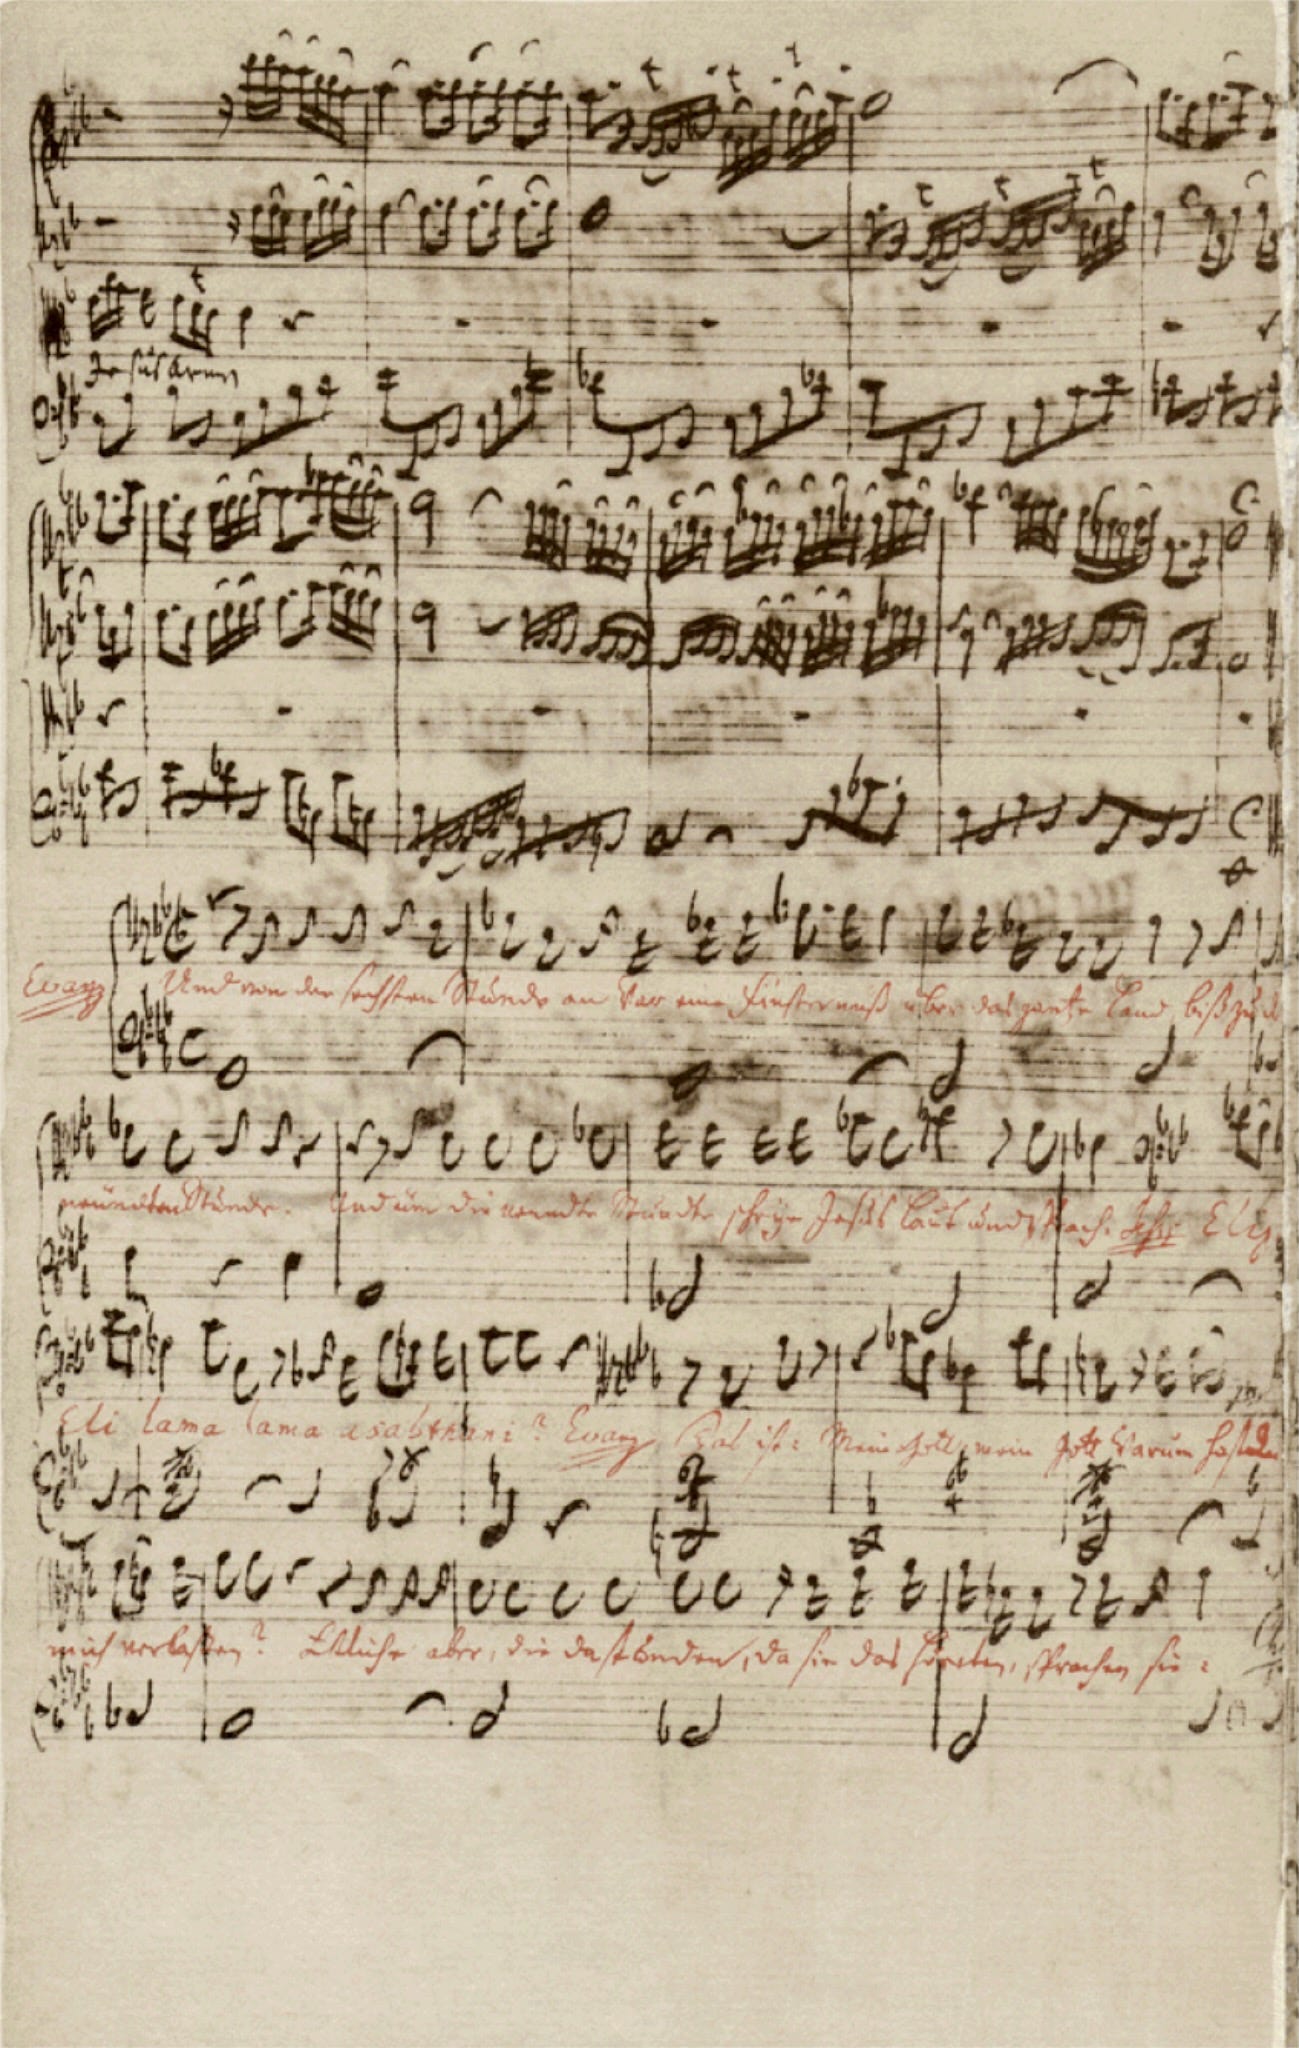 Jesus Armen
Evang Und von der sechsten Stunde an war eine Finsterniß über das gantze Land biß zu
neundten Stunde. Und um die neundte Stunde schrye Jesus laut und sprach. Jesus Eli,
Eli lama lama asabthani? Evang Das ist: Mein Gott, mein Gott warum hastu
mich verlaßen? Etliche aber, die da stunden, da sie das höreten, sprachen sie: